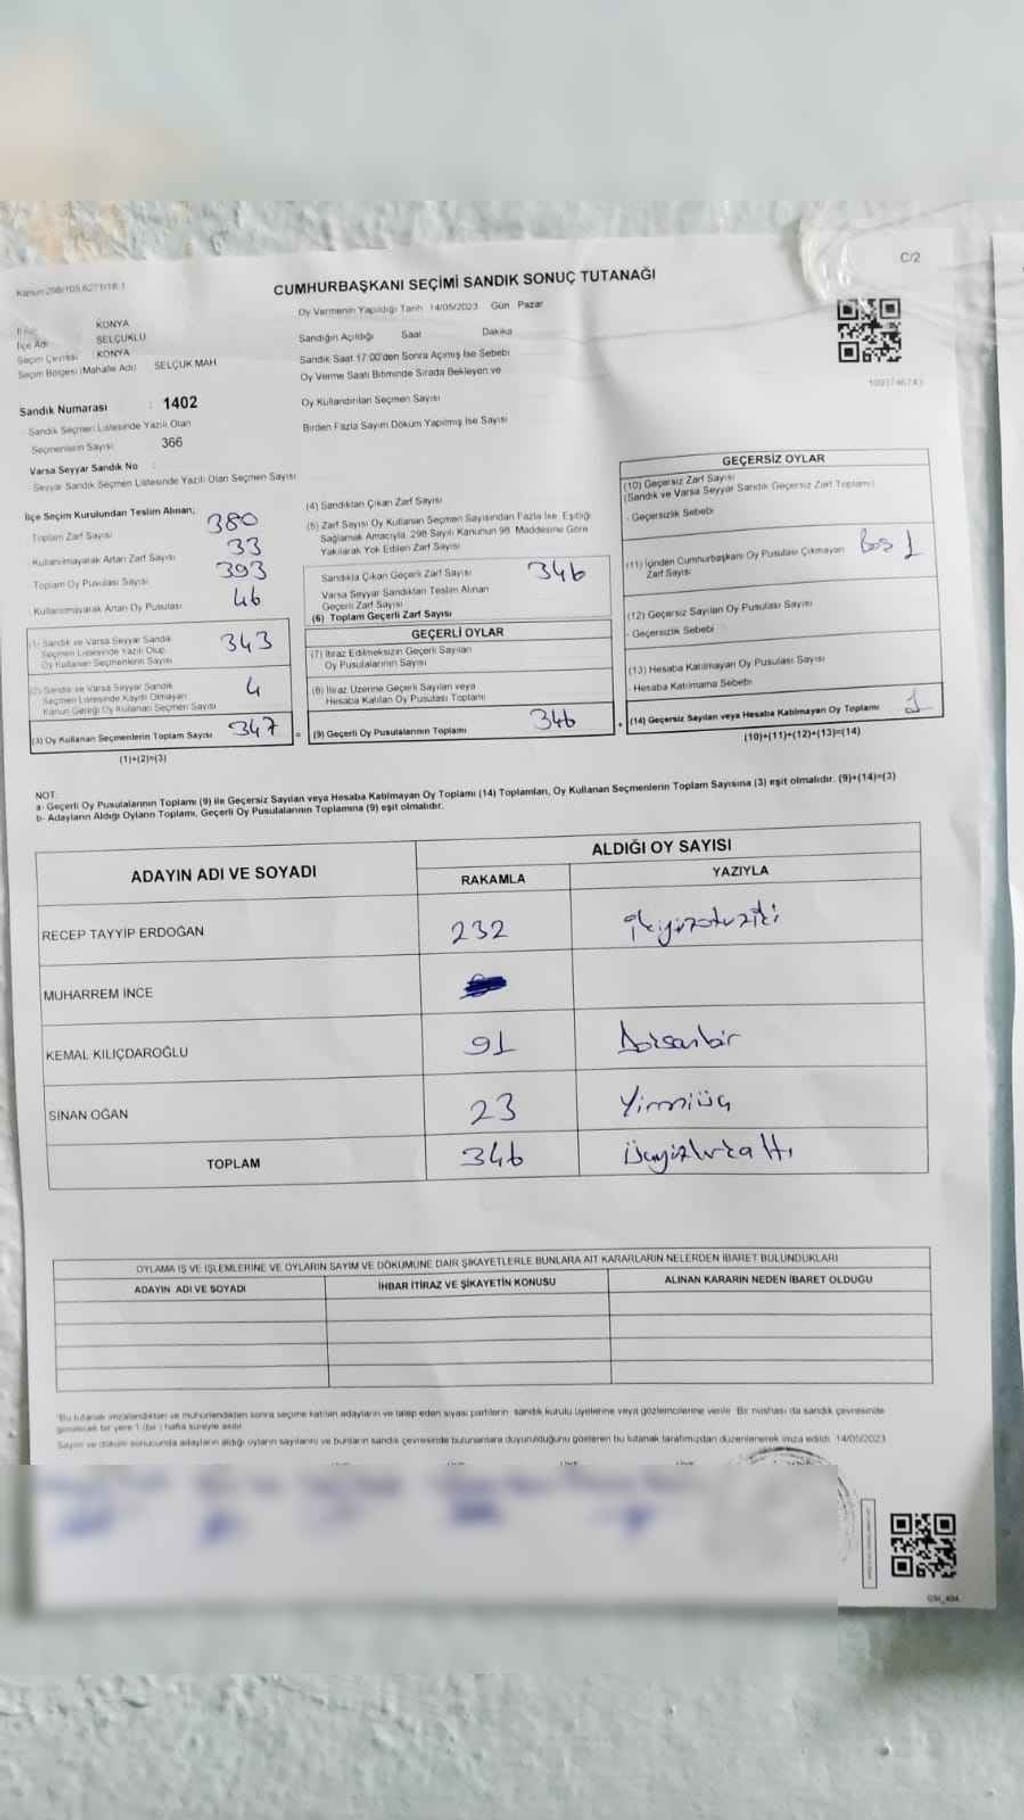 C/2
CUMHURBAŞKANI SEÇİMİ SANDIK SONUÇ TUTANAĞI
Oy Vermenin Yapıldığı Tarih 14/05/2023 Gün Pazar
KONYA
İlçe Adı SELÇUKLU
Seçim Çevresi KONYA
Seçim Bölgesi (Mahalle Adı) SELÇUK MAH
Sandığın Açıldığı Saat Dakika
Sandık Saat 17:00'den Sonra Açılmış İse Sebebi
Oy Verme Saati Bitiminde Sırada Bekleyen ve
Oy Kullandırılan Seçmen Sayısı
Birden Fazla Sayım Döküm Yapılmış İse Sayısı
Sandık Numarası : 1402
Sandık Seçmen Listesinde Yazılı Olan
Seçmenlerin Sayısı 366
Varsa Seyyar Sandık No :
Seyyar Sandık Seçmen Listesinde Yazılı Olan Seçmen Sayısı
İlçe Seçim Kurulundan Teslim Alınan;
Toplam Zarf Sayısı 380
Kullanılmayarak Artan Zarf Sayısı 33
Toplam Oy Pusulası Sayısı 393
Kullanılmayarak Artan Oy Pusulası 46
(1) Sandık ve Varsa Seyyar Sandık
Seçmen Listesinde Yazılı Olup
Oy Kullanan Seçmenlerin Sayısı 343
(2) Sandık ve Varsa Seyyar Sandık
Seçmen Listesinde Kayıtlı Olmayan
Kanun Gereği Oy Kullanan Seçmen Sayısı 4
(3) Oy Kullanan Seçmenlerin Toplam Sayısı 347
(1)+(2)=(3)
(4) Sandıktan Çıkan Zarf Sayısı
(5) Zarf Sayısı Oy Kullanan Seçmen Sayısından Fazla İse, Eşitliği
Sağlamak Amacıyla, 298 Sayılı Kanunun 98. Maddesine Göre
Yakılarak Yok Edilen Zarf Sayısı
Sandıkta Çıkan Geçerli Zarf Sayısı 346
Varsa Seyyar Sandıktan Teslim Alınan
Geçerli Zarf Sayısı
(6) Toplam Geçerli Zarf Sayısı
GEÇERLİ OYLAR
(7) İtiraz Edilmeksizin Geçerli Sayılan
Oy Pusulalarının Sayısı
(8) İtiraz Üzerine Geçerli Sayılan veya
Hesaba Katılan Oy Pusulası Toplamı
= (9) Geçerli Oy Pusulalarının Toplamı 346
GEÇERSİZ OYLAR
(10) Geçersiz Zarf Sayısı
(Sandık ve Varsa Seyyar Sandık Geçersiz Zarf Toplamı)
- Geçersizlik Sebebi
(11) İçinden Cumhurbaşkanı Oy Pusulası Çıkmayan
Zarf Sayısı Boş 1
(12) Geçersiz Sayılan Oy Pusulası Sayısı
- Geçersizlik Sebebi
(13) Hesaba Katılmayan Oy Pusulası Sayısı
- Hesaba Katılmama Sebebi
+ (14) Geçersiz Sayılan veya Hesaba Katılmayan Oy Toplamı 1
(10)+(11)+(12)+(13)=(14)
NOT:
a- Geçerli Oy Pusulalarının Toplamı (9) ile Geçersiz Sayılan veya Hesaba Katılmayan Oy Toplamı (14) Toplamları, Oy Kullanan Seçmenlerin Toplam Sayısına (3) eşit olmalıdır. (9)+(14)=(3)
b- Adayların Aldığı Oyların Toplamı, Geçerli Oy Pusulalarının Toplamına (9) eşit olmalıdır.
ADAYIN ADI VE SOYADI
ALDIĞI OY SAYISI
RAKAMLA YAZIYLA
RECEP TAYYİP ERDOĞAN 232 ikiyüzotuziki
MUHARREM İNCE
KEMAL KILIÇDAROĞLU 91 Doksanbir
SİNAN OĞAN 23 Yirmiüç
TOPLAM 346 Üçyüzkırkaltı
OYLAMA İŞ VE İŞLEMLERİNE VE OYLARIN SAYIM VE DÖKÜMÜNE DAİR ŞİKAYETLERLE BUNLARA AİT KARARLARIN NELERDEN İBARET BULUNDUKLARI
ADAYIN ADI VE SOYADI İHBAR İTİRAZ VE ŞİKAYETİN KONUSU ALINAN KARARIN NEDEN İBARET OLDUĞU
Bu tutanak imzalandıktan ve mühürlendikten sonra seçime katılan adayların ve talep eden siyasi partilerin sandık kurulu üyelerine veya gözlemcilerine verilir. Bir nüshası da sandık çevresinde
görülecek bir yere 1 (bir) hafta süreyle asılır.
Sayım ve döküm sonucunda adayların aldığı oyların sayılarını ve bunların sandık çevresinde bulunanlara duyurulduğunu gösteren bu tutanak tarafımızdan düzenlenerek imza edildi. 14/05/2023